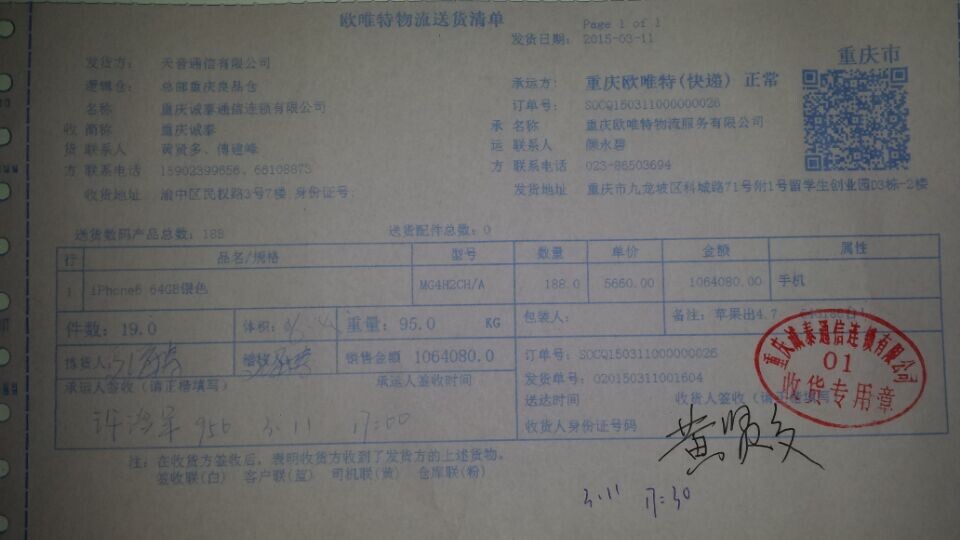 欧唯特物流送货清单
Page 1 of 1
发货日期: 2015-03-11
重庆市
发货方: 天音通信有限公司
承运方: 重庆欧唯特(快递) 正常
逻辑仓: 总部重庆良品仓
订单号: SOCQ150311000000026
名称 重庆诚泰通信连锁有限公司
承 名称 重庆欧唯特物流服务有限公司
收 简称 重庆诚泰
运 联系人 颜永碧
货 联系人 黄贤多、傅建峰
方 联系电话 023-86503694
方 联系电话 15902399656、66108873
发货地址 重庆市九龙坡区科城路71号附1号留学生创业园D3栋-2楼
收货地址 渝中区民权路3号7楼 身份证号:
送货数码产品总数: 188 送货配件总数: 0
行 品名/规格 型号 数量 单价 金额 属性
1 iPhone6 64GB银色 MG4H2CH/A 188.0 5660.00 1064080.00 手机
件数: 19.0 体积: 重量: 95.0 KG 包装人: 备注: 苹果出4.7
拣货人: 稽核: 销售金额 1064080.0 订单号: SOCQ150311000000026
承运人签收(请正楷填写) 承运人签收时间 发货单号: 020150311001604
送达时间 收货人签收(请正楷填写)
950 3.11 17:00
收货人身份证号码
黄贤多
重庆诚泰通信连锁有限公司
01
收货专用章
注: 在收货方签收后, 表明收货方收到了发货方的上述货物。
签收联(白) 客户联(蓝) 司机联(黄) 仓库联(粉)
3.11 17:30